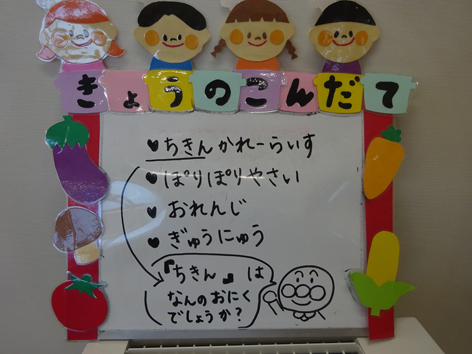 きょうのこんだて
♥ちきんかれーらいす
♥ぽりぽりやさい
♥おれんじ
♥ぎゅうにゅう
『ちきん』は
なんのおにく
でしょうか?